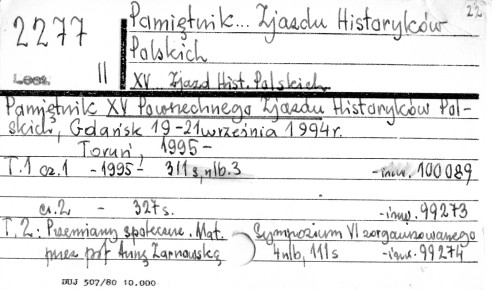 22
2277
Pamiętnik... Zjazdu Historyków
Polskich
II
XV Zjazd Hist. Polskich
Pamiętnik XV Powszechnego Zjazdu Historyków Pol-
skich, Gdańsk 19-21 września 1994r.
Toruń, 1995-
T.1 cz.1 - 1995 - 311 s, nlb.3 - inw. 100089
cz.2 - 327 s. - inw. 99273
T.2: Przemiany społeczne. Mat. Sympozium VI zorganizowanego
przez prof Annę Żarnowską 4 nlb, 111 s - inw. 99274
DUJ 507/80 10.000